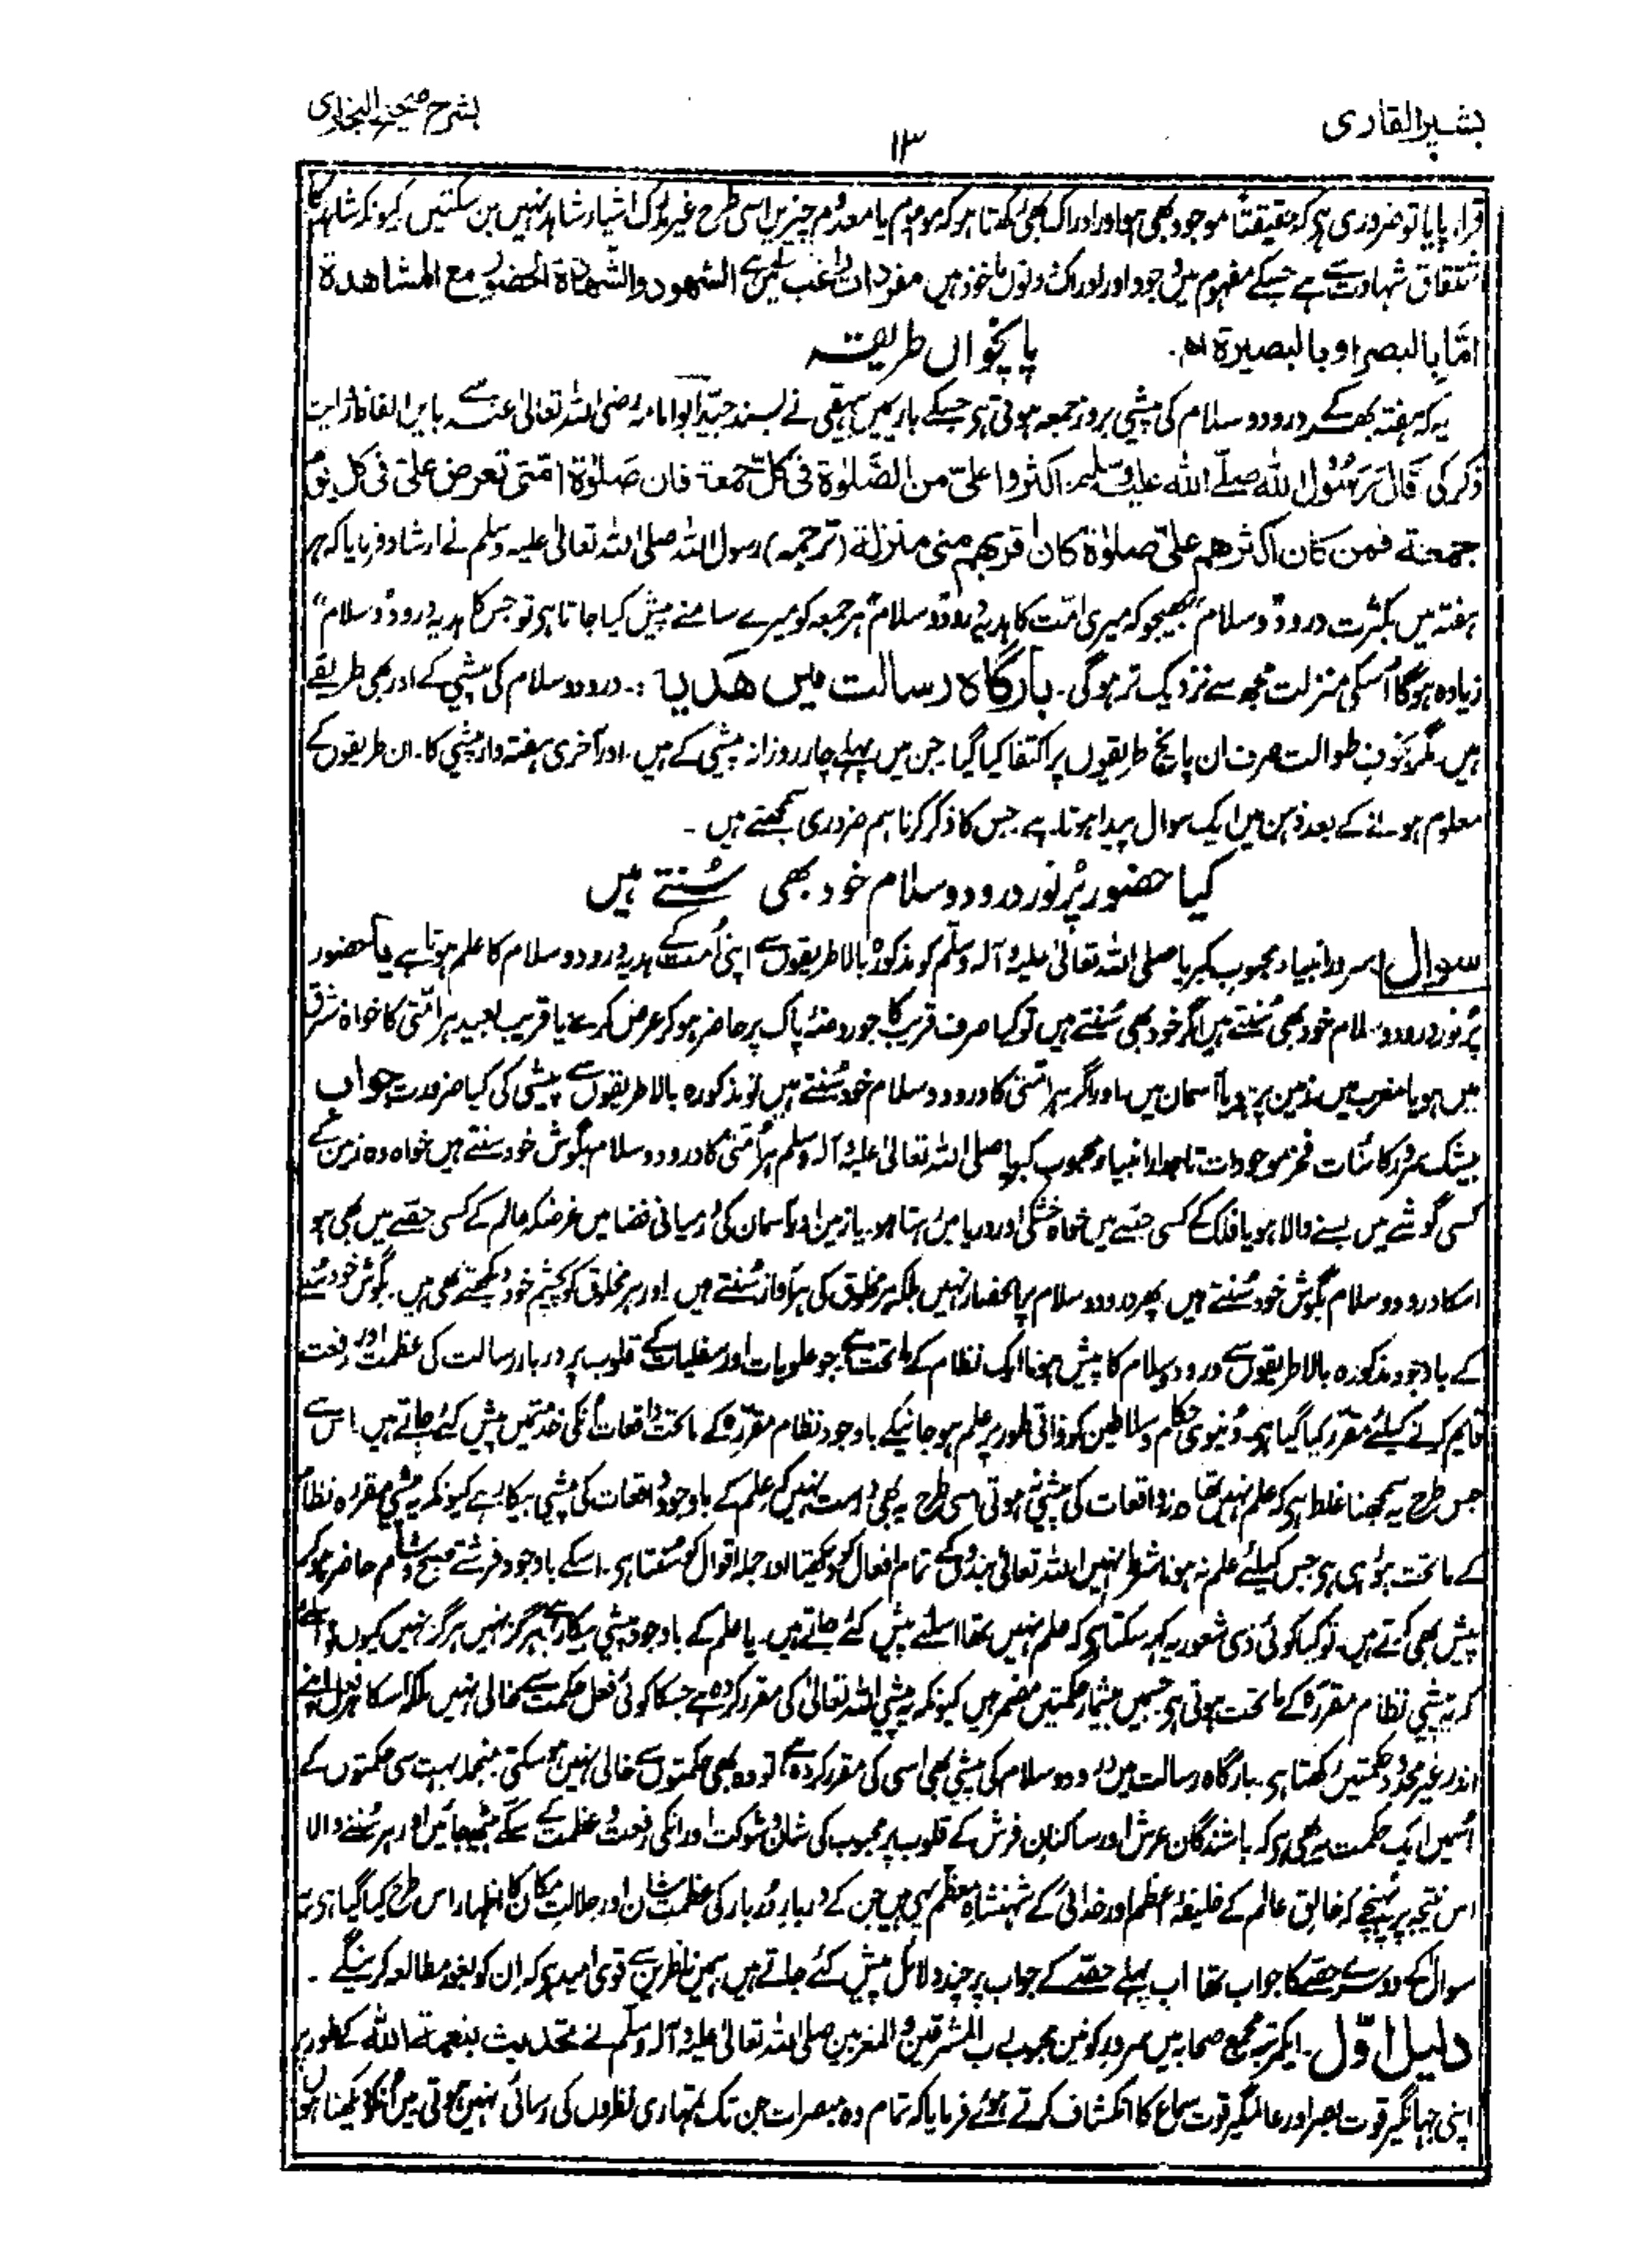 بشیر القاری
۱۳
بشرح صحیح البخاری
قرار پایا تو ضروری ہے کہ حقیقتاً موجود بھی ہو اور ادراک بھی رکھتا ہو کہ موہوم یا معدوم چیزیں اسی طرح غیر مدرک اشیاء شاہد نہیں بن سکتیں کیونکہ شاہد کا
اشتقاق شہادت سے ہے جسکے مفہوم میں وجود اور ادراک دونوں ماخوذ ہیں مفردات راغب میں ہے الشهود والشهادة الحضور مع المشاهدة
امّا بالبصر او بالبصیرة اھ۔ پانچواں طریقہ
یہ کہ ہفتہ بھر کے درود و سلام کی پیشی بروز جمعہ ہوتی ہے جسکے بارے میں بیہقی نے بسند جیّد ابو امامہ رضی اللہ تعالیٰ عنہ سے بایں الفاظ روایت
ذکر کی قال رسول الله صلّے الله علیه وسلم اکثروا علیّ من الصّلوٰة فی کلّ جمعة فان صلوٰة امّتی تعرض علیّ فی کل یوم
جمعة فمن کان اکثرهم علیّ صلوٰة کان اقربهم منی منزلة (ترجمہ) رسول اللہ صلی اللہ تعالیٰ علیہ وسلم نے ارشاد فرمایا کہ ہر
ہفتہ میں بکثرت درود و سلام بھیجو کہ میری امّت کا ہدیۂ درود و سلام ہر جمعہ کو میرے سامنے پیش کیا جاتا ہے تو جس کا ہدیۂ درود و سلام"
زیادہ ہوگا اُسکی منزلت مجھ سے نزدیک تر ہوگی۔ بارگاہ رسالت میں ھدیا :۔ درود و سلام کی پیشی کے اور بھی طریقے
ہیں مگر بخوف طوالت صرف ان پانچ طریقوں پر اکتفا کیا گیا جن میں پہلے چار روزانہ پیشی کے ہیں۔ اور آخری ہفتہ وار پیشی کا۔ ان طریقوں کے
معلوم ہونے کے بعد ذہن میں ایک سوال پیدا ہوتا ہے جس کا ذکر کرنا ہم ضروری سمجھتے ہیں ۔
کیا حضور پُر نور درود و سلام خود بھی سُنتے ہیں
سوال سرور انبیاء محبوب کبریا صلی اللہ تعالیٰ علیہ وآلہ وسلّم کو مذکورہ بالا طریقوں سے اپنی اُمت کے ہدیۂ درود و سلام کا علم ہوتا ہے یا حضور
پُر نور درود و سلام خود بھی سُنتے ہیں اگر خود بھی سُنتے ہیں تو کیا صرف قریب کا جو روضۂ پاک پر حاضر ہو کر عرض کرے یا قریب بعید ہر امّتی کا خواہ مشرق
میں ہو یا مغرب میں زمین پر ہو یا آسمان میں۔ اور اگر ہر امّتی کا درود و سلام خود سُنتے ہیں تو مذکورہ بالا طریقوں سے پیشی کی کیا ضرورت جواب
بیشک سرور کائنات فخر موجودات تاجدار انبیاء محبوب کبریا صلی اللہ تعالیٰ علیہ وآلہ وسلم ہر اُمّتی کا درود و سلام بگوش خود سنتے ہیں خواہ وہ زمین کے
کسی گوشے میں بسنے والا ہو یا فلک کے کسی حصّے میں خواہ خشکی اور دریا میں رہتا ہو۔ یا زمین اور آسمان کی درمیانی فضا میں غرضکہ عالم کے کسی حصّے میں بھی ہو
اسکا درود و سلام بگوش خود سُنتے ہیں پھر درود و سلام پر انحصار نہیں بلکہ ہر مخلوق کی ہر آواز سُنتے ہیں اور ہر مخلوق کو بچشم خود دیکھتے بھی ہیں۔ بگوش خود سُننے
کے باوجود مذکورہ بالا طریقوں سے درود و سلام کا پیش ہونا ایک نظام کے ماتحت ہے جو علویات اور سفلیات کے قلوب پر دربار رسالت کی عظمت اور رفعت
قایم کرنے کیلئے مقرّر کیا گیا ہے۔ دُنیوی حکام و سلاطین کو ذاتی طور پر علم ہو جانیکے باوجود نظام مقرّرہ کے ماتحت واقعات اُنکی خدمتیں پیش کئے جاتے ہیں اس سے
جس طرح یہ سمجھنا غلط ہے کہ علم نہیں تھا ورنہ واقعات کی پیشی نہ ہوتی اسی طرح یہ بھی درست نہیں کہ علم کے باوجود واقعات کی پیشی بیکار ہے کیونکہ یہ پیشی مقررہ نظام
کے ماتحت ہو رہی ہے جس کیلئے علم نہ ہونا شرط نہیں اللہ تعالیٰ بندوں کے تمام افعال کو دیکھتا اور جملہ اقوال کو سنتا ہے۔ اسکے باوجود فرشتے صبح و شام حاضر ہو کر
پیش بھی کرتے ہیں۔ تو کیا کوئی ذی شعور یہ کہہ سکتا ہے کہ علم نہیں تھا اسلئے پیش کئے جاتے ہیں۔ یا علم کے باوجود پیشی بیکار ہے ہرگز نہیں ہرگز نہیں کیوں؟ اسلئے
کہ یہ پیشی نظام مقررہ کے ماتحت ہوتی ہے جسمیں بیشمار حکمتیں مضمر ہیں کیونکہ یہ پیشی اللہ تعالیٰ کی مقرر کردہ ہے جسکا کوئی فعل حکمت سے خالی نہیں بلکہ اسکا ہر فعل اپنے
اندر غیر محدود حکمتیں رکھتا ہے۔ بارگاہ رسالت میں درود و سلام کی پیشی بھی اسی کی مقرر کردہ ہے تو وہ بھی حکمتوں سے خالی نہیں ہو سکتی منجملہ بہت سی حکمتوں کے
اُسمیں ایک حکمت یہ بھی ہے کہ باشندگان عرش اور ساکنان فرش کے قلوب پر محبوب کی شان و شوکت اور انکی رفعت و عظمت کے سکّے بیٹھ جائیں اور ہر سُننے والا
اس نتیجہ پر پہنچے کہ خالق عالم کے خلیفۂ اعظم اور خدائی کے شہنشاہ معظّم یہی ہیں جن کے دربار دُربار کی عظمت شان اور جلالت مکان کا اظہار اس طرح کیا گیا ہے یہ
سوال کے دوسرے حصّے کا جواب تھا اب پہلے حصّے کے جواب پر چند دلائل پیش کئے جاتے ہیں ہمیں ناظرین سے قوی امید ہے کہ ان کو بغور مطالعہ کرینگے ۔
دلیل اوّل۔ ایک مرتبہ مجمع صحابہ میں سرور کونین محبوب رب المشرقین والمغربین صلی اللہ تعالیٰ علیہ وآلہ وسلّم نے تحدیث بنعمة الله کے طور پر
اپنی جہانگیر قوت بصر اور عالمگیر قوت سماع کا انکشاف کرتے ہوئے فرمایا کہ تمام وہ مبصرات جن تک تمہاری نظروں کی رسائی نہیں ہوتی میں انکو دیکھتا ہوں